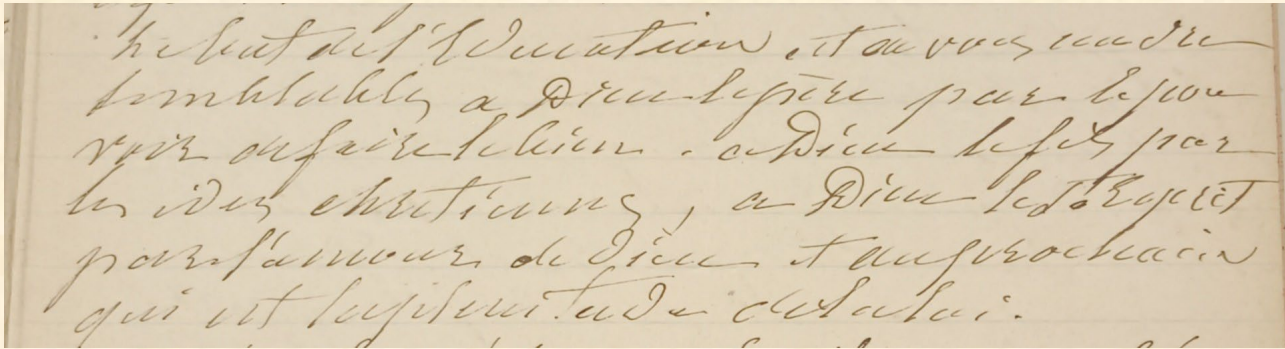 Le but de l'Education est de vous rendre
semblables a Dieu le père par le pou
voir de faire le bien. a Dieu le fils par
les idées chretiennes, a Dieu le St Esprit
par l'amour de Dieu et du prochain
qui est la plenitude de la loi.